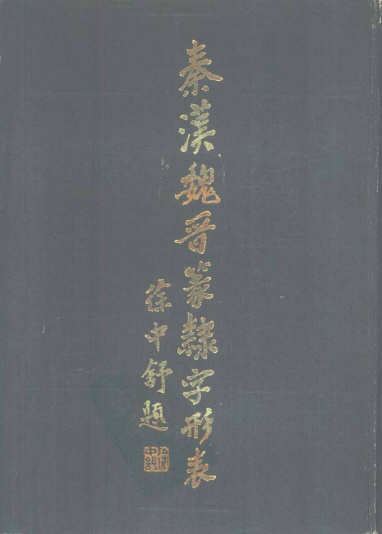 秦漢魏晋篆隸字形表
徐中舒題
中舒